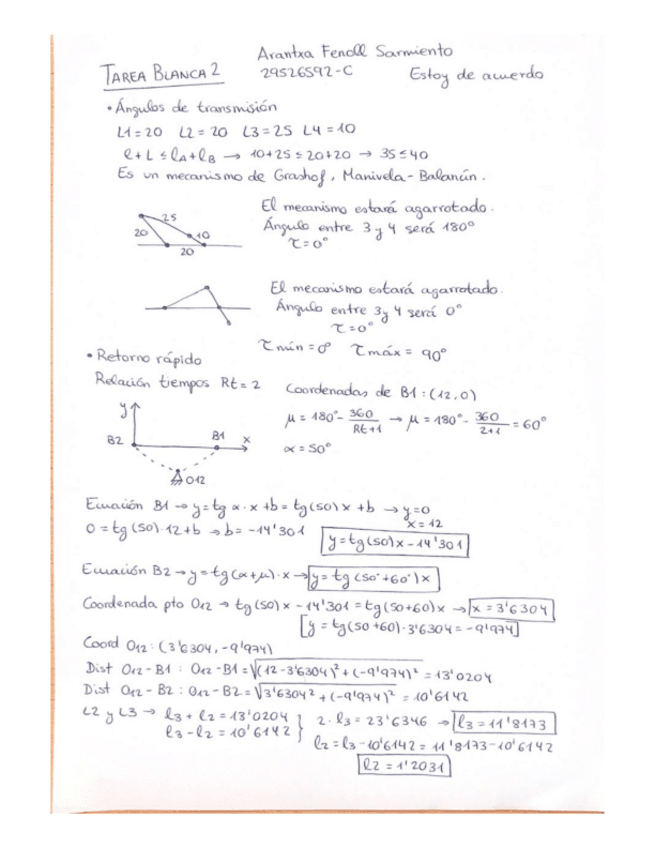 Arantxa Fenoll Sarmiento
TAREA BLANCA 2 29526592-C Estoy de acuerdo
• Ángulos de transmisión
L1=20 L2=20 L3=25 L4=10
l+L ≤ lA+lB → 10+25 ≤ 20+20 → 35 ≤ 40
Es un mecanismo de Grashof, Manivela-Balancín.
25
20
10
20
El mecanismo estará agarrotado.
Ángulo entre 3 y 4 será 180°
τ=0°
El mecanismo estará agarrotado.
Ángulo entre 3 y 4 será 0°
τ=0°
τmín=0° τmáx= 90°
• Retorno rápido
Relación tiempos Rt=2
Coordenadas de B1: (12,0)
μ = 180°- 360/Rt+1 → μ = 180°- 360/2+1 = 60°
α = 50°
y
B2
B1
x
O12
Ecuación B1 → y=tg α·x+b=tg(50)x+b → y=0
x=12
0=tg(50)·12+b → b=-14'301
y=tg(50)x-14'301
Ecuación B2 → y=tg(α+μ)·x → y=tg(50°+60°)x
Coordenada pto O12 → tg(50)x-14'301=tg(50+60)x → x=3'6304
[y=tg(50+60)·3'6304=-9'974]
Coord O12: (3'6304, -9'974)
Dist O12-B1: O12-B1=√(12-3'6304)²+(-9'974)² = 13'0204
Dist O12-B2: O12-B2=√3'6304²+(-9'974)² = 10'6142
L2 y L3 → l3+l2=13'0204
l3-l2=10'6142 } 2·l3=23'6346 → l3=11'8173
l2=l3-10'6142=11'8173-10'6142
l2=1'2031